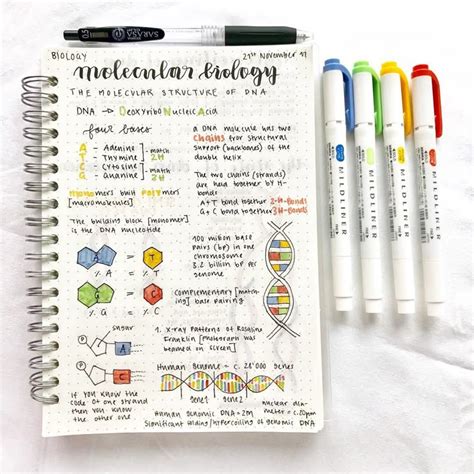 0.5 SARASA
BIOLOGY
21st November 17
molecular biology
THE MOLECULAR STRUCTURE OF DNA
DNA → DeoxyriboNucleicAcid
four bases
A - Adenine
T - Thymine
C - Cytosine
G - Guanine
match
2H
match
3H
monomers built polymers
[macromolecules]
The building block [monomer]
is the DNA nucleotide
a DNA molecule has two
chains for structural
support (backbones) of the
double helix
The two chains (strands)
are held together by H-
bonds
A+T bond together 2H-Bonds
G+C bond together 3H-Bonds
A = T
% A % T
G = C
% G % C
100 million base
pairs (bp) in one
chromosome
3.2 billion bp per
genome
Complementary [match-
ing] base pairing
sugar
A
C
If you know the
code of one strand
then you know
the other one
1. X-ray patterns of Rosalind
Franklin [photograph was
beamed on screen]
Human genome = c. 28'000 genes
gene1 gene2
Human genomic DNA = 2m
nuclear dia-
meter = c. 20µm
Significant folding/hypercoiling of genomic DNA
MILDLINER
MILDLINER
MILDLINER
MILDLINER